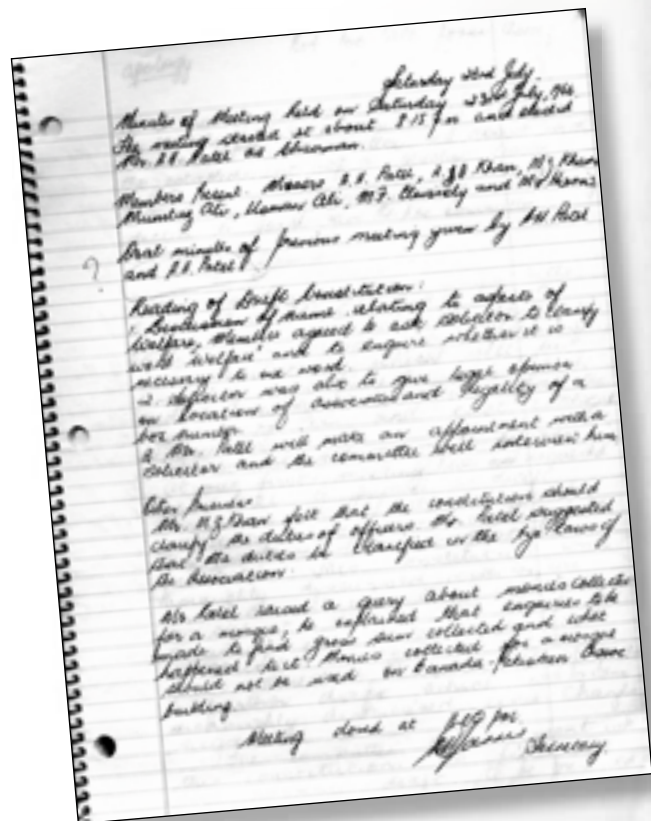 apology
Saturday 23rd July.
Minutes of Meeting held on Saturday 23rd July, 1966
The meeting started at about 8.15 pm and elected
Mr. A.H. Patel as Chairman.
Members Present. Messrs A.H. Patel, Khan, M.Z. Khan
Mumtaz Ali, Ali, M.F. and
Oral minutes of previous meeting given by AH Patel
and A.H. Patel
?
Reading of Draft Constitution:
1. Discussion of name relating to aspects of
Welfare, Members agreed to ask solicitor to clarify
word 'welfare' and to enquire whether it is
necessary to use word.
2. Solicitor was also to give legal opinion
on location of association and legality of a
box number
& Mr. Patel will make an appointment with a
Solicitor and the committee will interview him
Other Business:
Mr. M.Z. Khan felt that the constitution should
clarify the duties of officers. Mr. Patel suggested
that the duties be clarified in the bye laws of
the Association.
Mr Patel raised a query about monies collected
for a mosque, he explained that enquiries be
made to find gross sum collected and what
happened to it. Monies collected for a mosque
should not be used on Canada Pakistan
building.
Meeting closed at pm.
Secretary.